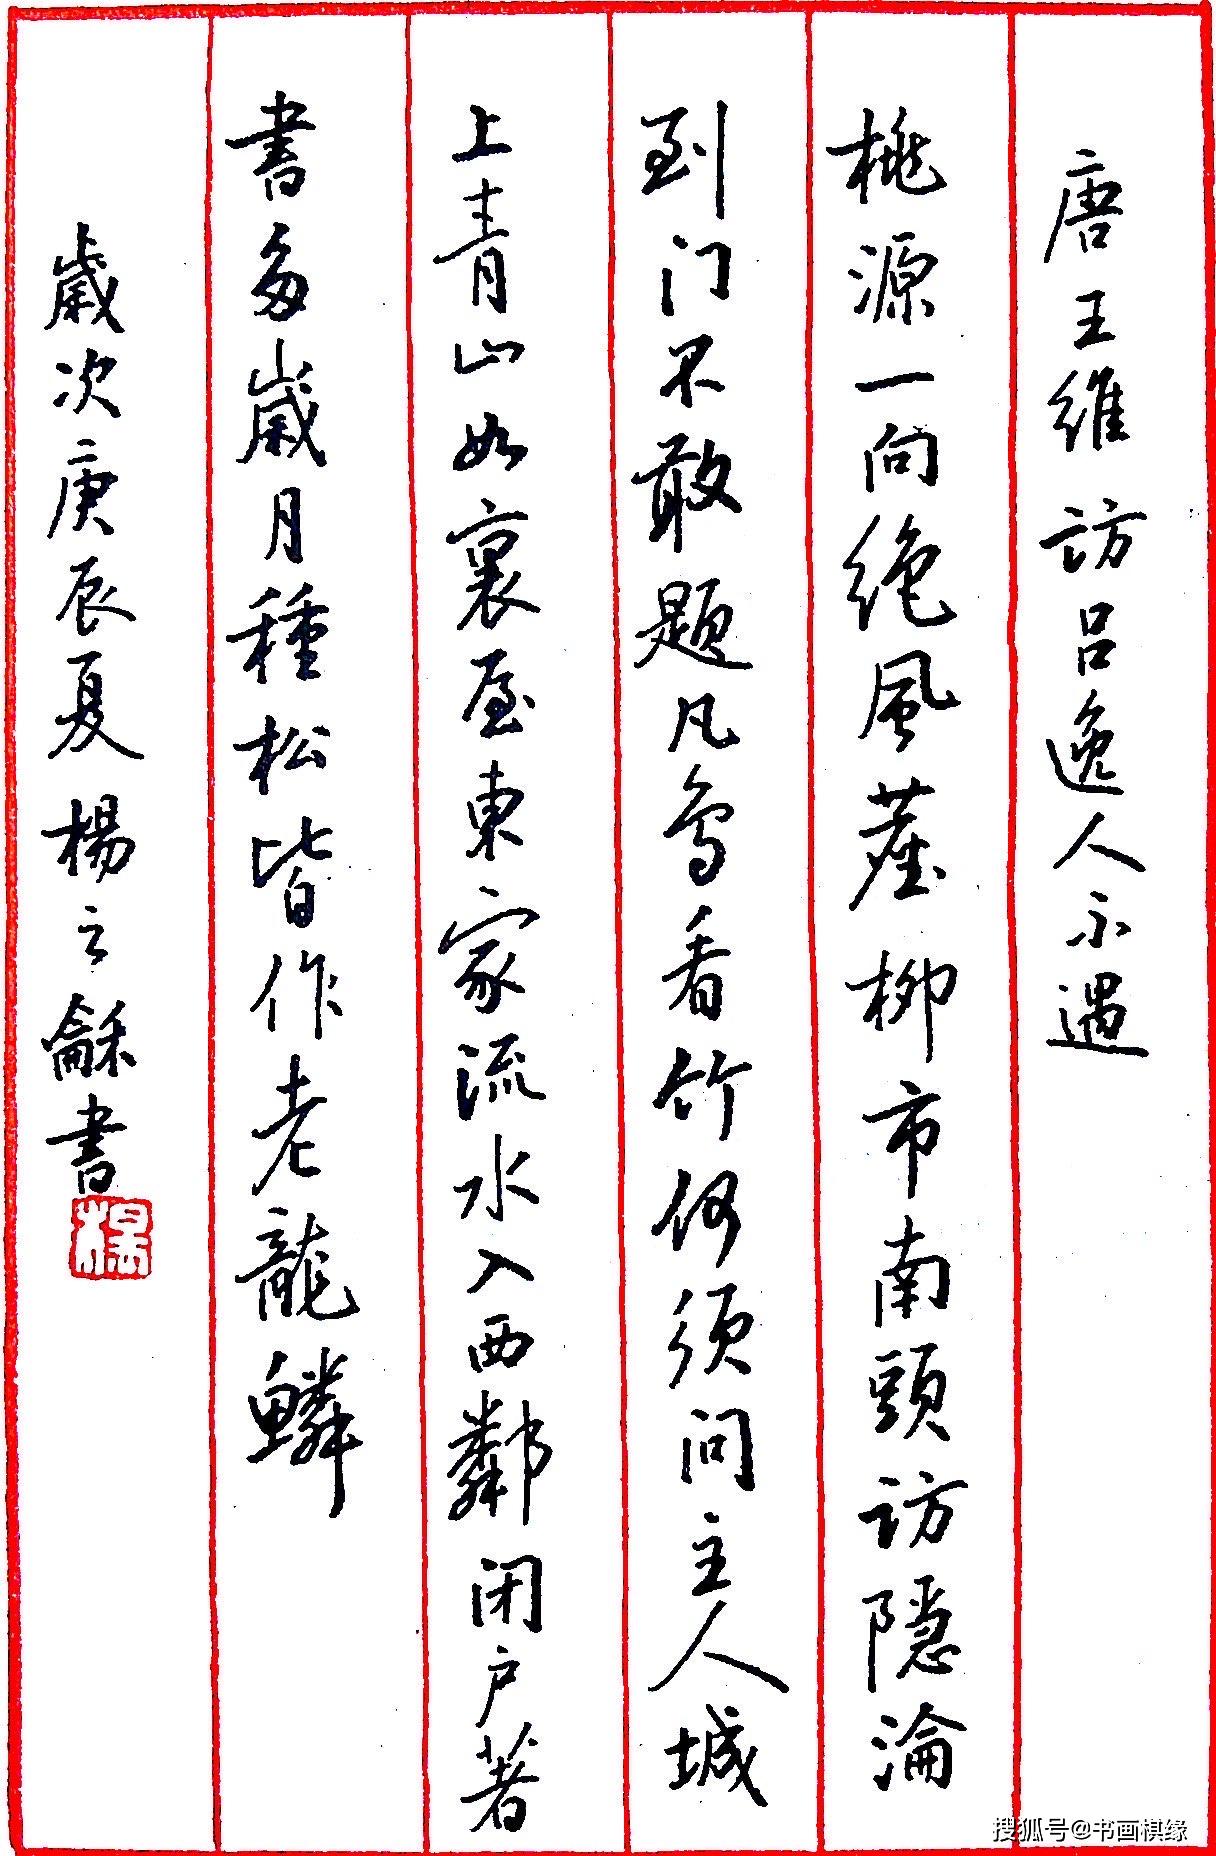 唐王维 访吕逸人不遇
桃源一向绝風塵柳市南頭访隱淪
到门不敢题凡鸟看竹何须问主人城
上青山如裏屋東家流水入西鄰闭户著
書多歲月種松皆作老龍鱗
歲次庚辰夏楊之龢書
楊
搜狐号@书画棋缘